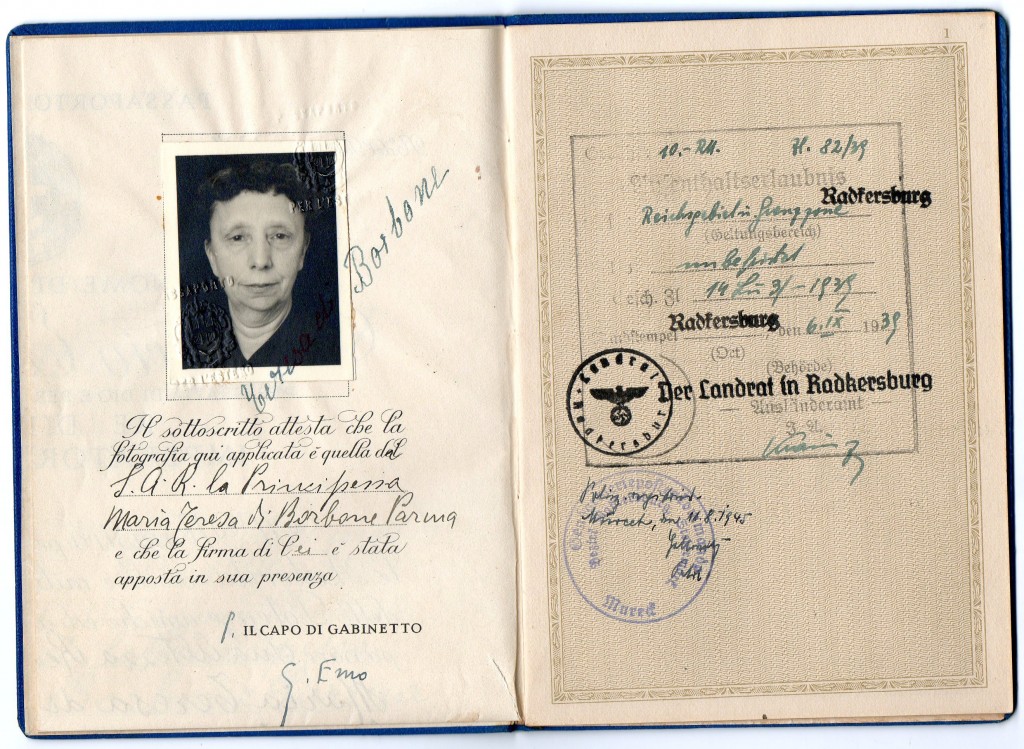 PER L'ES
Teresa di Borbone
Il sottoscritto attesta che la
fotografia qui applicata è quella del
S. A. R. la Principessa
Maria Teresa di Borbone Parma
e che la firma di lei è stata
apposta in sua presenza
p. IL CAPO DI GABINETTO
G. Emo
1
10.- RM. H. 82/39
Aufenthaltserlaubnis
Radkersburg
Reichsgebiet u Grenzzone
(Geltungsbereich)
unbefristet
Gesch. Zl 14 1939
Radkersburg, den 6. IX 1939
(Ort) (Behörde)
Landrat Radkersburg
Der Landrat in Radkersburg
— Ausländeramt —
J. A.
Mureck, den 11.8.1945
Mureck